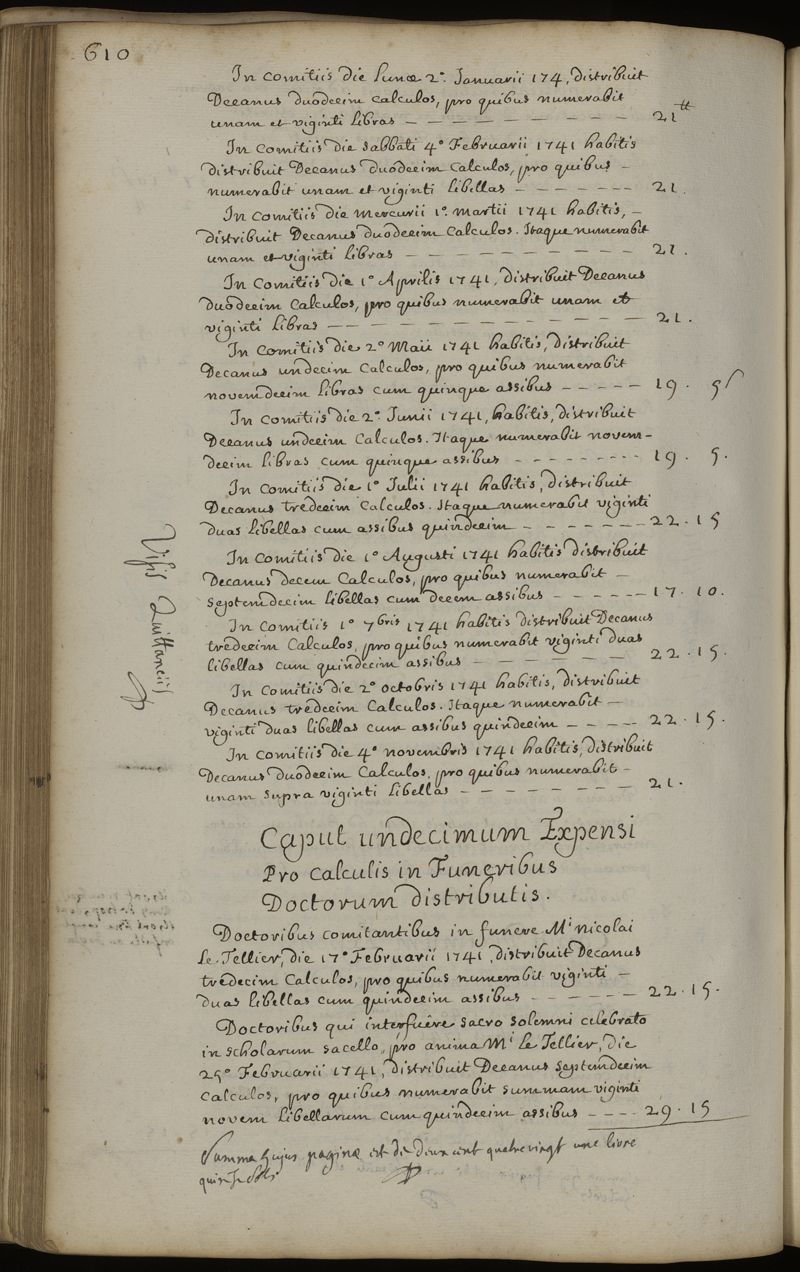 610
In comitiis die Lunæ 2ª. Januarii 174, distribuit
Decanus duodecim calculos, pro quibus numerabit
unam et viginti libras — — — — — — — — 21ᵗᵗ
In Comitiis die sabbati 4º Februarii 1741 habitis
distribuit Decanus duodecim calculos, pro quibus —
numerabit unam et viginti libellas — — — — — — — 21.
In Comitiis die mercurii 1º. martii 1741 habitis, —
distribuit Decanus duodecim calculos. Itaque numerabit
unam et viginti libras — — — — — — — — — 21.
In Comitiis die 1º Aprilis 1741, distribuit Decanus
duodecim calculos, pro quibus numerabit unam et
viginti libras — — — — — — — — — — — — 21.
In Comitiis die 2º Maii 1741 habitis, distribuit
Decanus undecim calculos, pro quibus numerabit
novemdecim libras cum quinque assibus — — — — — 19. 5ſ
In Comitiis die 2ª. Junii 1741, habitis, distribuit
Decanus undecim calculos. Itaque numerabit novem-
decim libras cum quinque assibus — — — — — — — — 19. 5.
In Comitiis die 1º Julii 1741 habitis, distribuit
Decanus tredecim calculos. Itaque numerabit viginti
duas libellas cum assibus quindecim — — — — — — — 22. 15
In Comitiis die 1º Augusti 1741 habitis distribuit
Decanus decem calculos, pro quibus numerabit —
septemdecim libellas cum decem assibus — — — — — — 17. 10.
In Comitiis 1º 7bris 1741 habitis distribuit Decanus
tredecim calculos, pro quibus numerabit viginti duas
libellas cum quindecim assibus — — — — — — — 22. 15.
In Comitiis die 2º octobris 1741 habitis, distribuit
Decanus tredecim calculos. Itaque numerabit —
viginti duas libellas cum assibus quindecim — — — — — 22. 15.
In Comitiis die 4º novembris 1741 habitis, distribuit
Decanus duodecim calculos, pro quibus numerabit —
unam supra viginti libellas — — — — — — — — 21.
Visis Quittanciis
Caput undecimum Expensi
Pro calculis in Funeribus
Doctorum distributis.
Doctoribus comitantibus in funere Mⁱ nicolai
Le Tellier, die 17º Februarii 1741, distribuit Decanus
tredecim calculos, pro quibus numerabit viginti —
duas libellas cum quindecim assibus — — — — — — 22. 15.
Doctoribus qui interfuêre sacro solemni celebrato
in scholarum sacello, pro anima Mⁱ Le Tellier, die
25º Februarii 1741, distribuit Decanus septemdecim
calculos, pro quibus numerabit summam viginti
novem libellarum cum quindecim assibus — — — — 29. 15
Summa hujus paginæ est de deux cent quatre vingt une livre
quinze sols